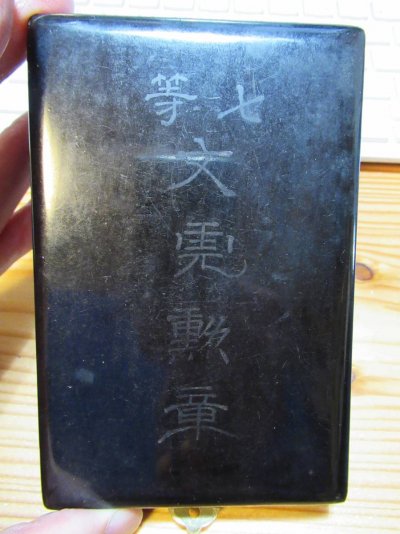 七等
文虎勳章